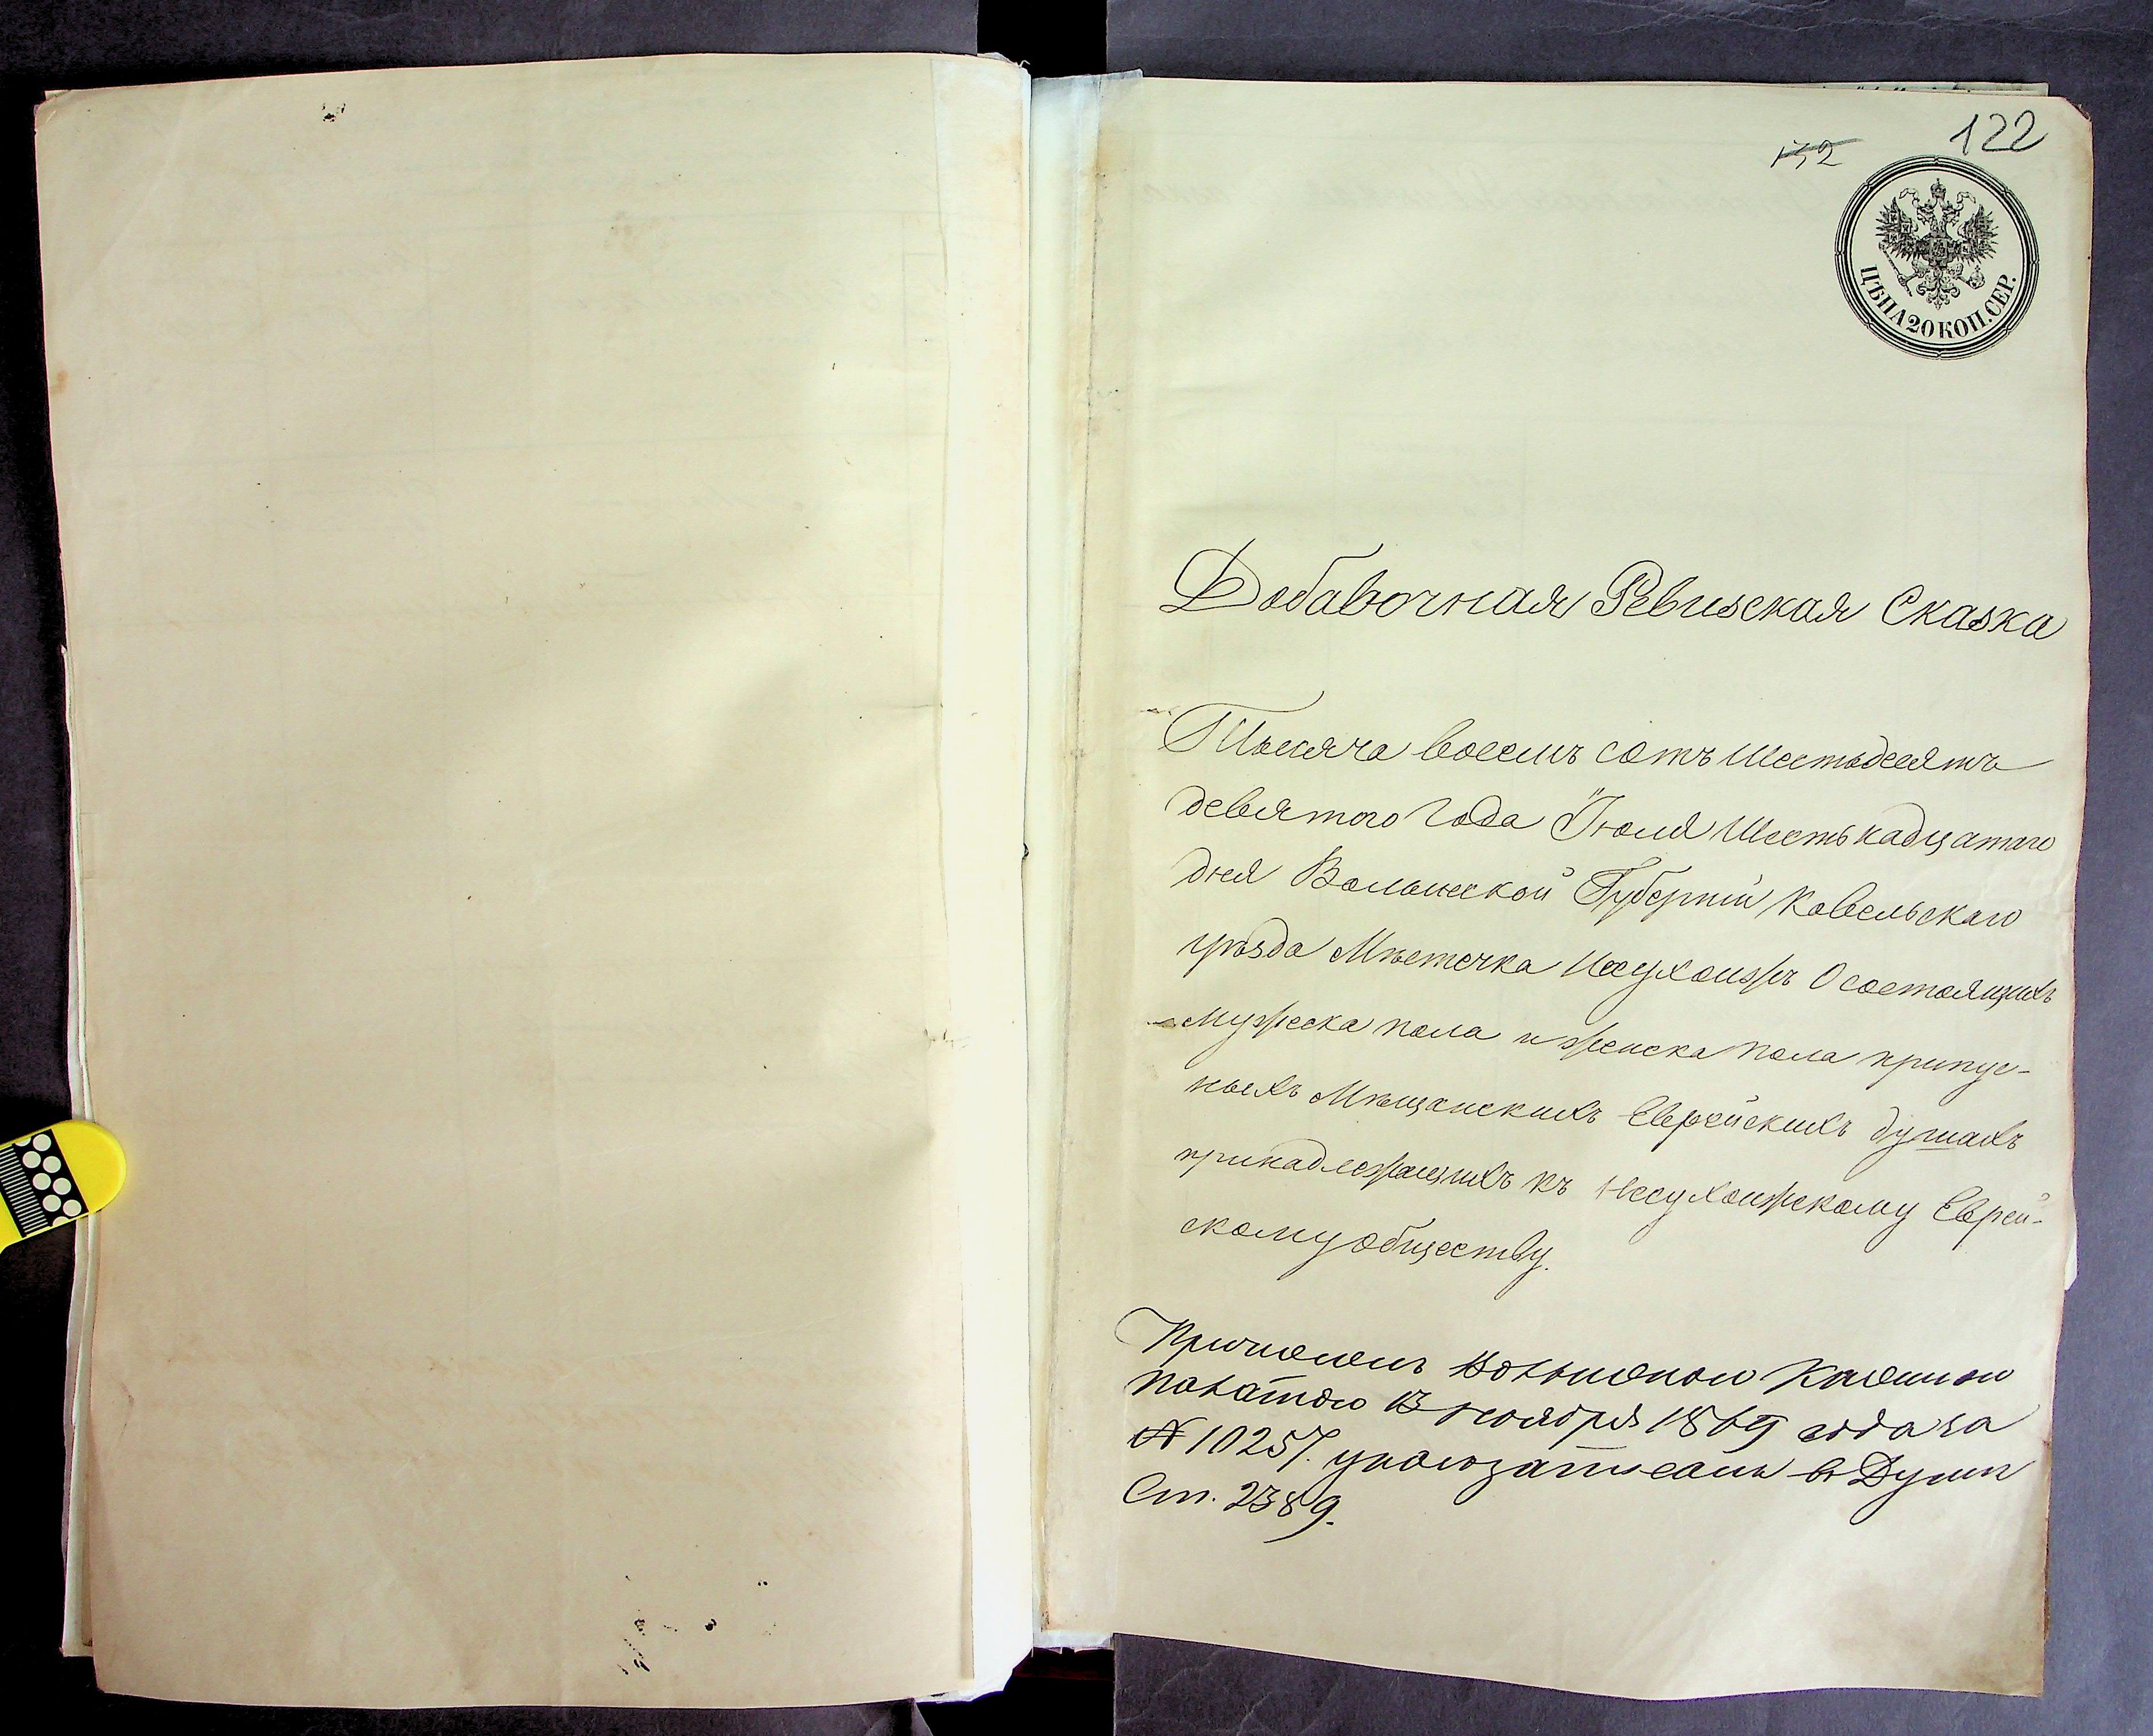 122
132
ЦѢНА 20 КОП. СЕР.
Добавочная Ревизская Сказка
Тысяча восемъ сотъ Шестьдесятъ
девятого года Іюля Шестьнадцатаго
дня Волынской Губерніи Ковельскаго
уѣзда Мѣстечка Несухоижъ О состоящихъ
мужеска пола и женска пола припус-
ныхъ Мѣщанскихъ Еврейскихъ душахъ
принадлежащихъ къ Несухоижскому Еврей-
скому обществу.
Причисленъ Волынскою Казенною
палатою 13 ноября 1869 года за
№ 10257. въ Думп
Ст. 2389.